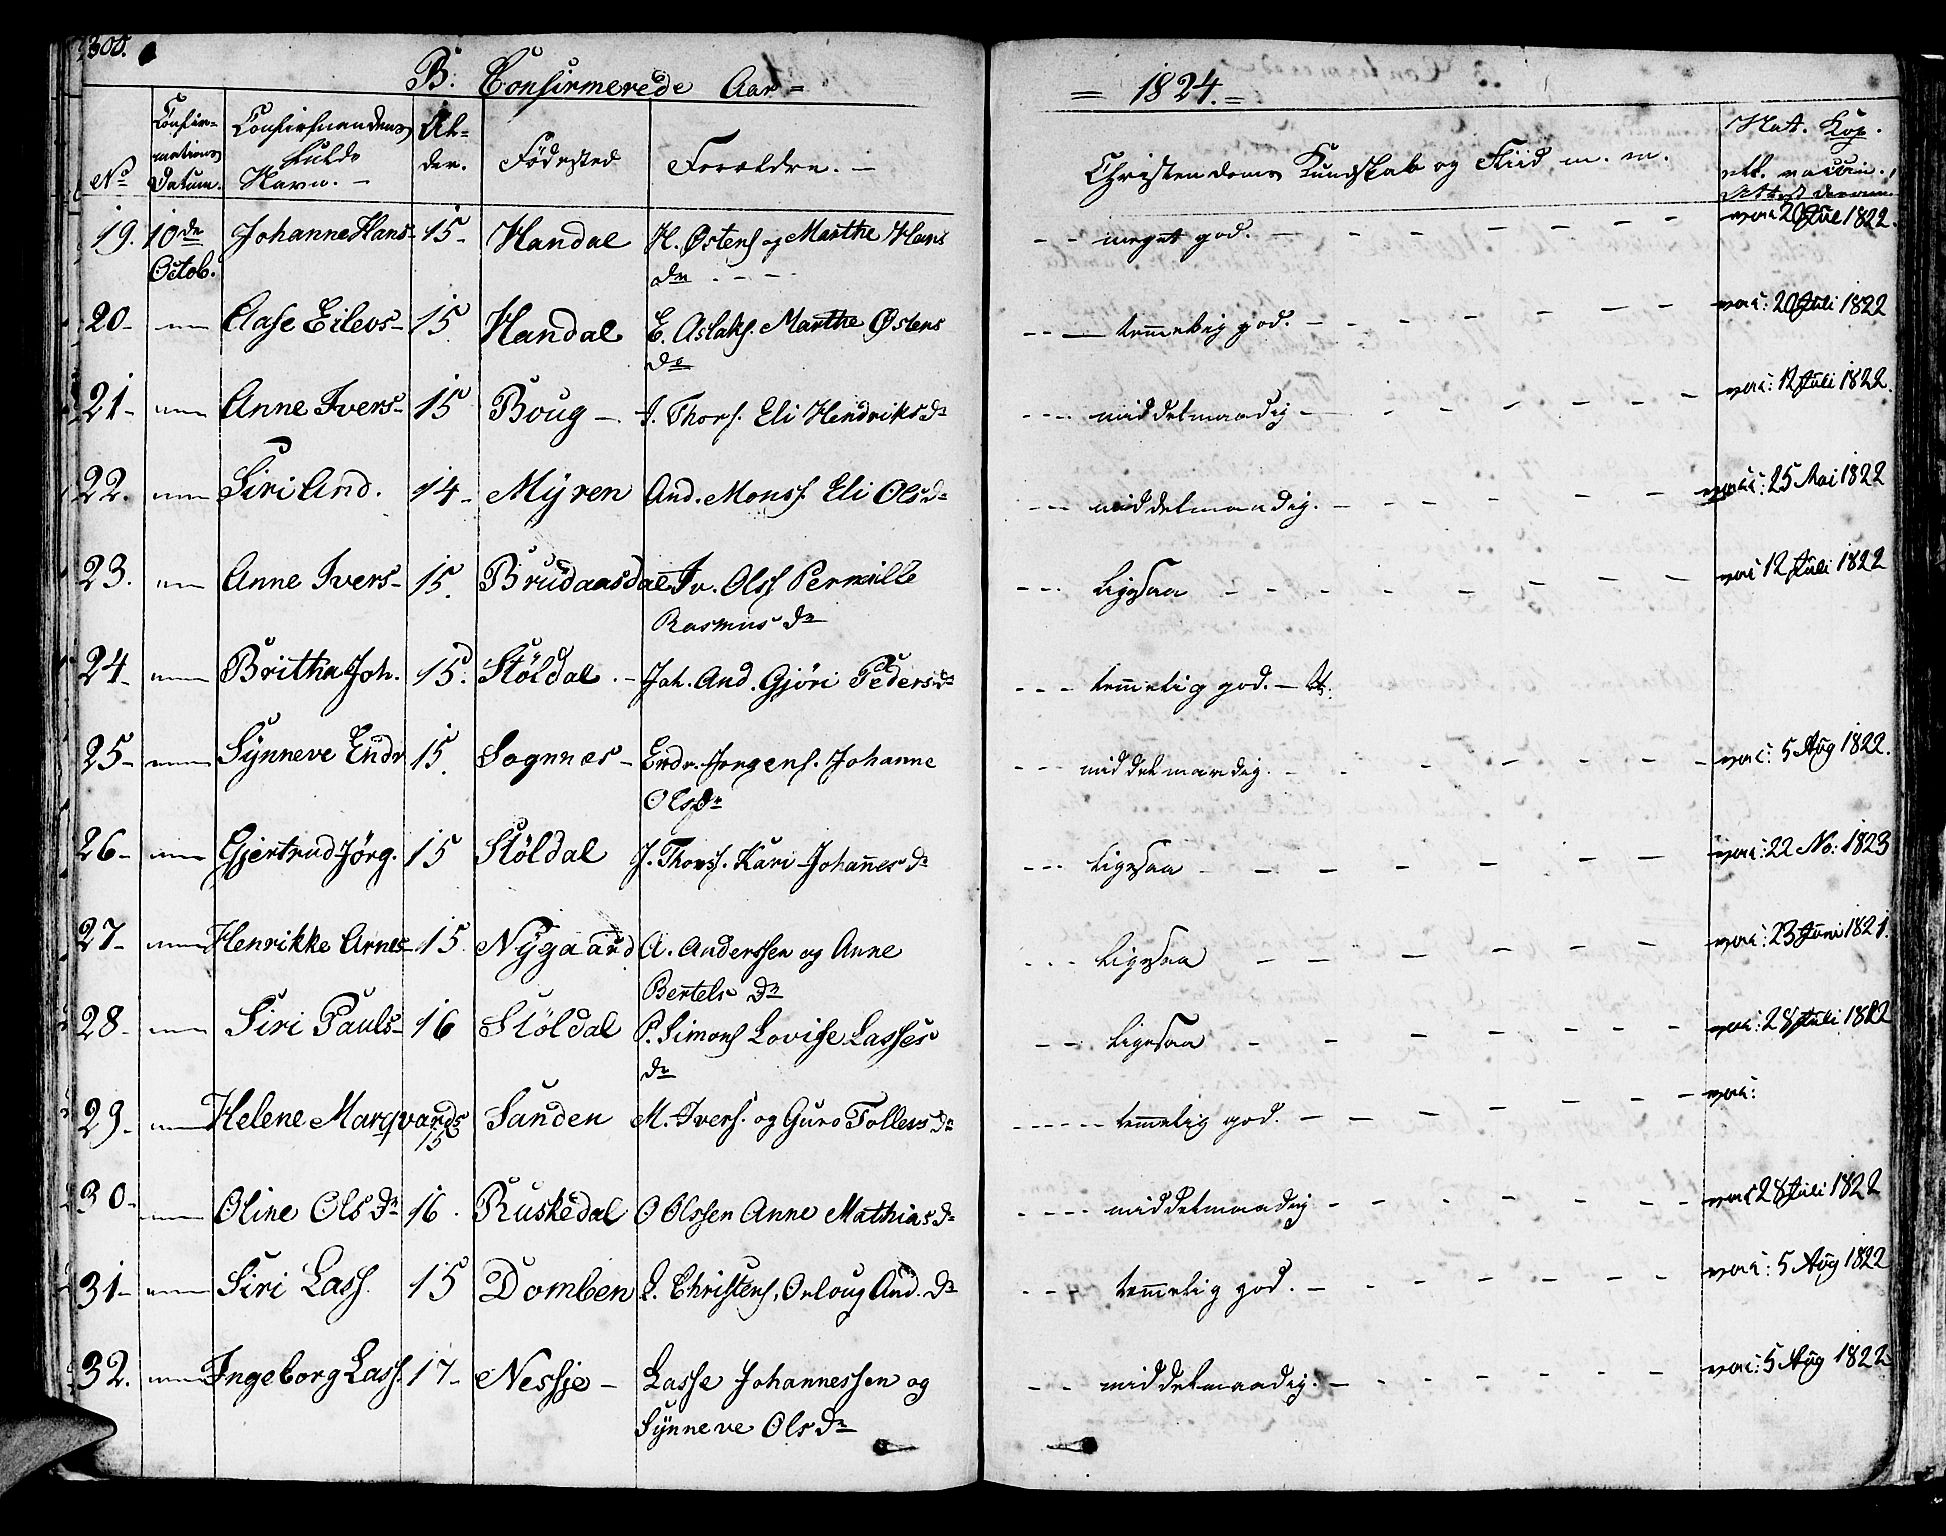 300.
B. Confirmerede Aar =
= 1824. =
No
Confir=
mations
Datum.
Confirmandens
fulde
Navn. -
Al=
der.
Fødested
Forældre. -
Christendoms Kundskab og Fliid m. m.
Nat. Kop.
vaccin.
19. 10de Octob. Johanne Hans- 15- Handal H. Østens og Marthe Hans
dr - - - meget god. - vac 20 Jul 1822.
20- Aase Eilevs- 15 Handal E. Aslaks. Marthe Østens
dr temelig god. - vac: 20 Juli 1822
21- Anne Ivers- 15 Boug - I. Thors. Eli Hendriksdr middelmaadig - vac: 12 Juli 1822.
22. Siri And. 14- Myren And. Monss. Eli Olsdr middelmaadig. - vac: 25 Mai 1822
23. Anne Ivers- 15. Brudaasdal Iv. Olss Pernille
Rasmusdr ligesaa - vac 12 Juli 1822
24- Britha Joh. 15. Stöldal. - Joh. And. Gjöri Pedersdr temelig god. -
25- Synneve Endr 15. Sognnes - Endr. Jørgens. Johanne
Olsdr middelmaadig. - vac: 5 Aug 1822.
26- Gjertrud Jörg. 15 Stöldal J. Thorss. Kari Johannesdr ligesaa - vac: 22 No: 1823
27- Henrikke Arnes- 15. Nygaard A. Anderssen og Anne
Bertelsdr ligesaa - vac: 23 Juni 1821.
28- Siri Pauls- 16 Stöldal P. Simons Lovise Lasses
dr ligesaa - vac: 28 Juli 1822
29- Helene Marqvards 15 Sanden M. Ivers. og Guro Tollevsdr temelig god. - vac:
30- Oline Olsdr 16. Ruskedal O Olssen Anne Mathiasdr middelmaadig - vac 28 Juli 1822
31- Siri Lass. 15 Domben L. Christens. Orloug And. dr temelig god. - vac: 5 Aug 1822
32. Ingeborg Lass. 17- Nessje - Lasse Johannessen og
Synneve Olsdr middelmaadig. - vac: 5 Aug 1822